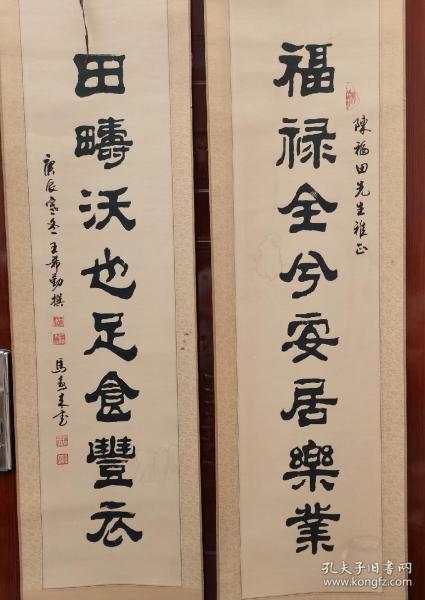 福祿全兮安居樂業
陳福田先生雅正
田疇沃也足食豐衣
庚辰寒冬王希勤撰
孔夫子旧书网
www.kongfz.com